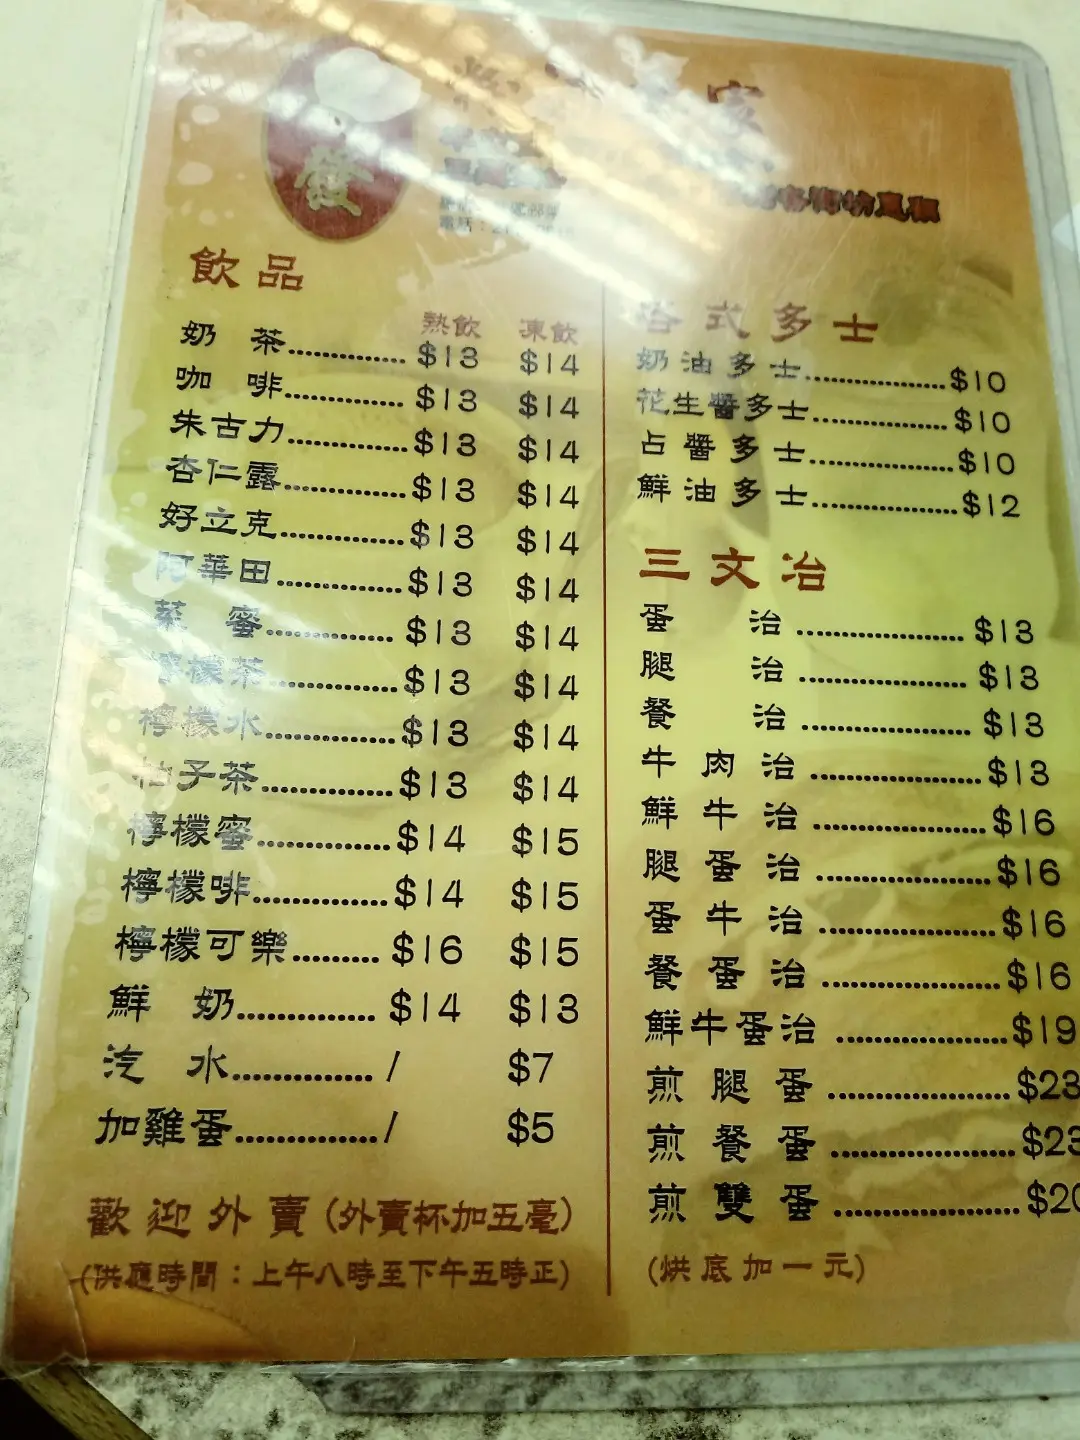 發
家
街坊惠顧
飲品
熱飲 凍飲
奶 茶.............. $13 $14
咖 啡.............. $13 $14
朱古力.............. $13 $14
杏仁露.............. $13 $14
好立克.............. $13 $14
阿華田.............. $13 $14
蜜.............. $13 $14
檸檬茶.............. $13 $14
檸檬水.............. $13 $14
柚子茶.............. $13 $14
檸檬蜜.............. $14 $15
檸檬啡.............. $14 $15
檸檬可樂......... $16 $15
鮮 奶.............. $14 $13
汽 水.............. / $7
加雞蛋.............. / $5
歡迎外賣(外賣杯加五毫)
(供應時間：上午八時至下午五時正)
各式多士
奶油多士.................$10
花生醬多士.................$10
占醬多士.................$10
鮮油多士.................$12
三文治
蛋 治 .................... $13
腿 治 .................... $13
餐 治 .................... $13
牛肉治 ....................$13
鮮牛治 ....................$16
腿蛋治 ....................$16
蛋牛治 ....................$16
餐蛋治 ....................$16
鮮牛蛋治 ....................$19
煎腿蛋 ....................$23
煎餐蛋 ....................$23
煎雙蛋 ....................$20
(烘底加一元)